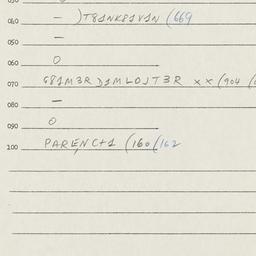 040 — )T81NK81V1N (669
050 —
060 0
070 G81M3R D1MLOJT3R x x (904
080 —
090 0
100 PARENC+1 (160/162